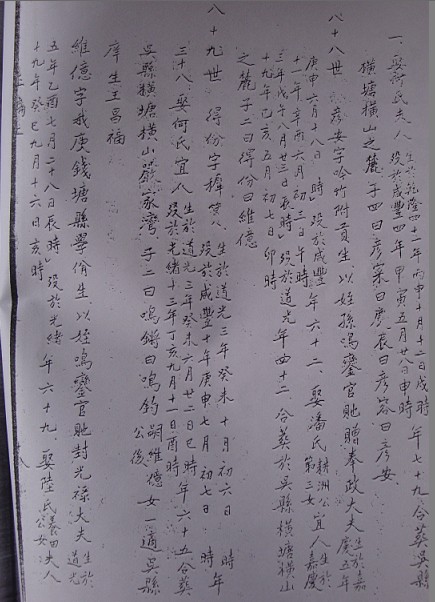 一娶何氏夫人生於乾隆四十一年丙申十月十二日戌時 年七十九合葬吳縣
歿於咸豐四年甲寅五月廿八日申時
橫塘橫山之麓子四曰彥案曰慶辰曰彥容曰彥安
八十八世 彥安字吟竹附貢生以姪孫鳴鑾官貤贈奉政大夫生於嘉慶五年
庚申六月十八日 時歿於咸豐 年六十二娶潘氏耕洲公第三女宜人生於嘉慶
十一年辛酉六月初三日午時
三年戊午八月廿三日辰時歿於道光 年四十二合葬於吳縣橫塘橫山
十九年己亥五月初七日卯時
之麓子二曰得份曰維億
八十九世 得份字樺 生於道光三年癸未十月初六日 時年
歿於咸豐十年庚申七月初七日 時
三十八娶何氏宜人生於道光三年癸未六月廿二日巳時年六十五合葬
歿於光緒十三年丁亥九月十一日酉時
吳縣橫塘橫山 家灣子二曰鳴鏘曰鳴鈞嗣維億公後女一適吳縣
庠生王昌福
維億字 庚錢塘縣學佾生以姪鳴鑾官貤封光祿大夫生於道光
五年乙酉七月二十八日辰時歿於光緒 年六十九娶陸氏 田公女夫人
十九年癸巳九月十六日亥時